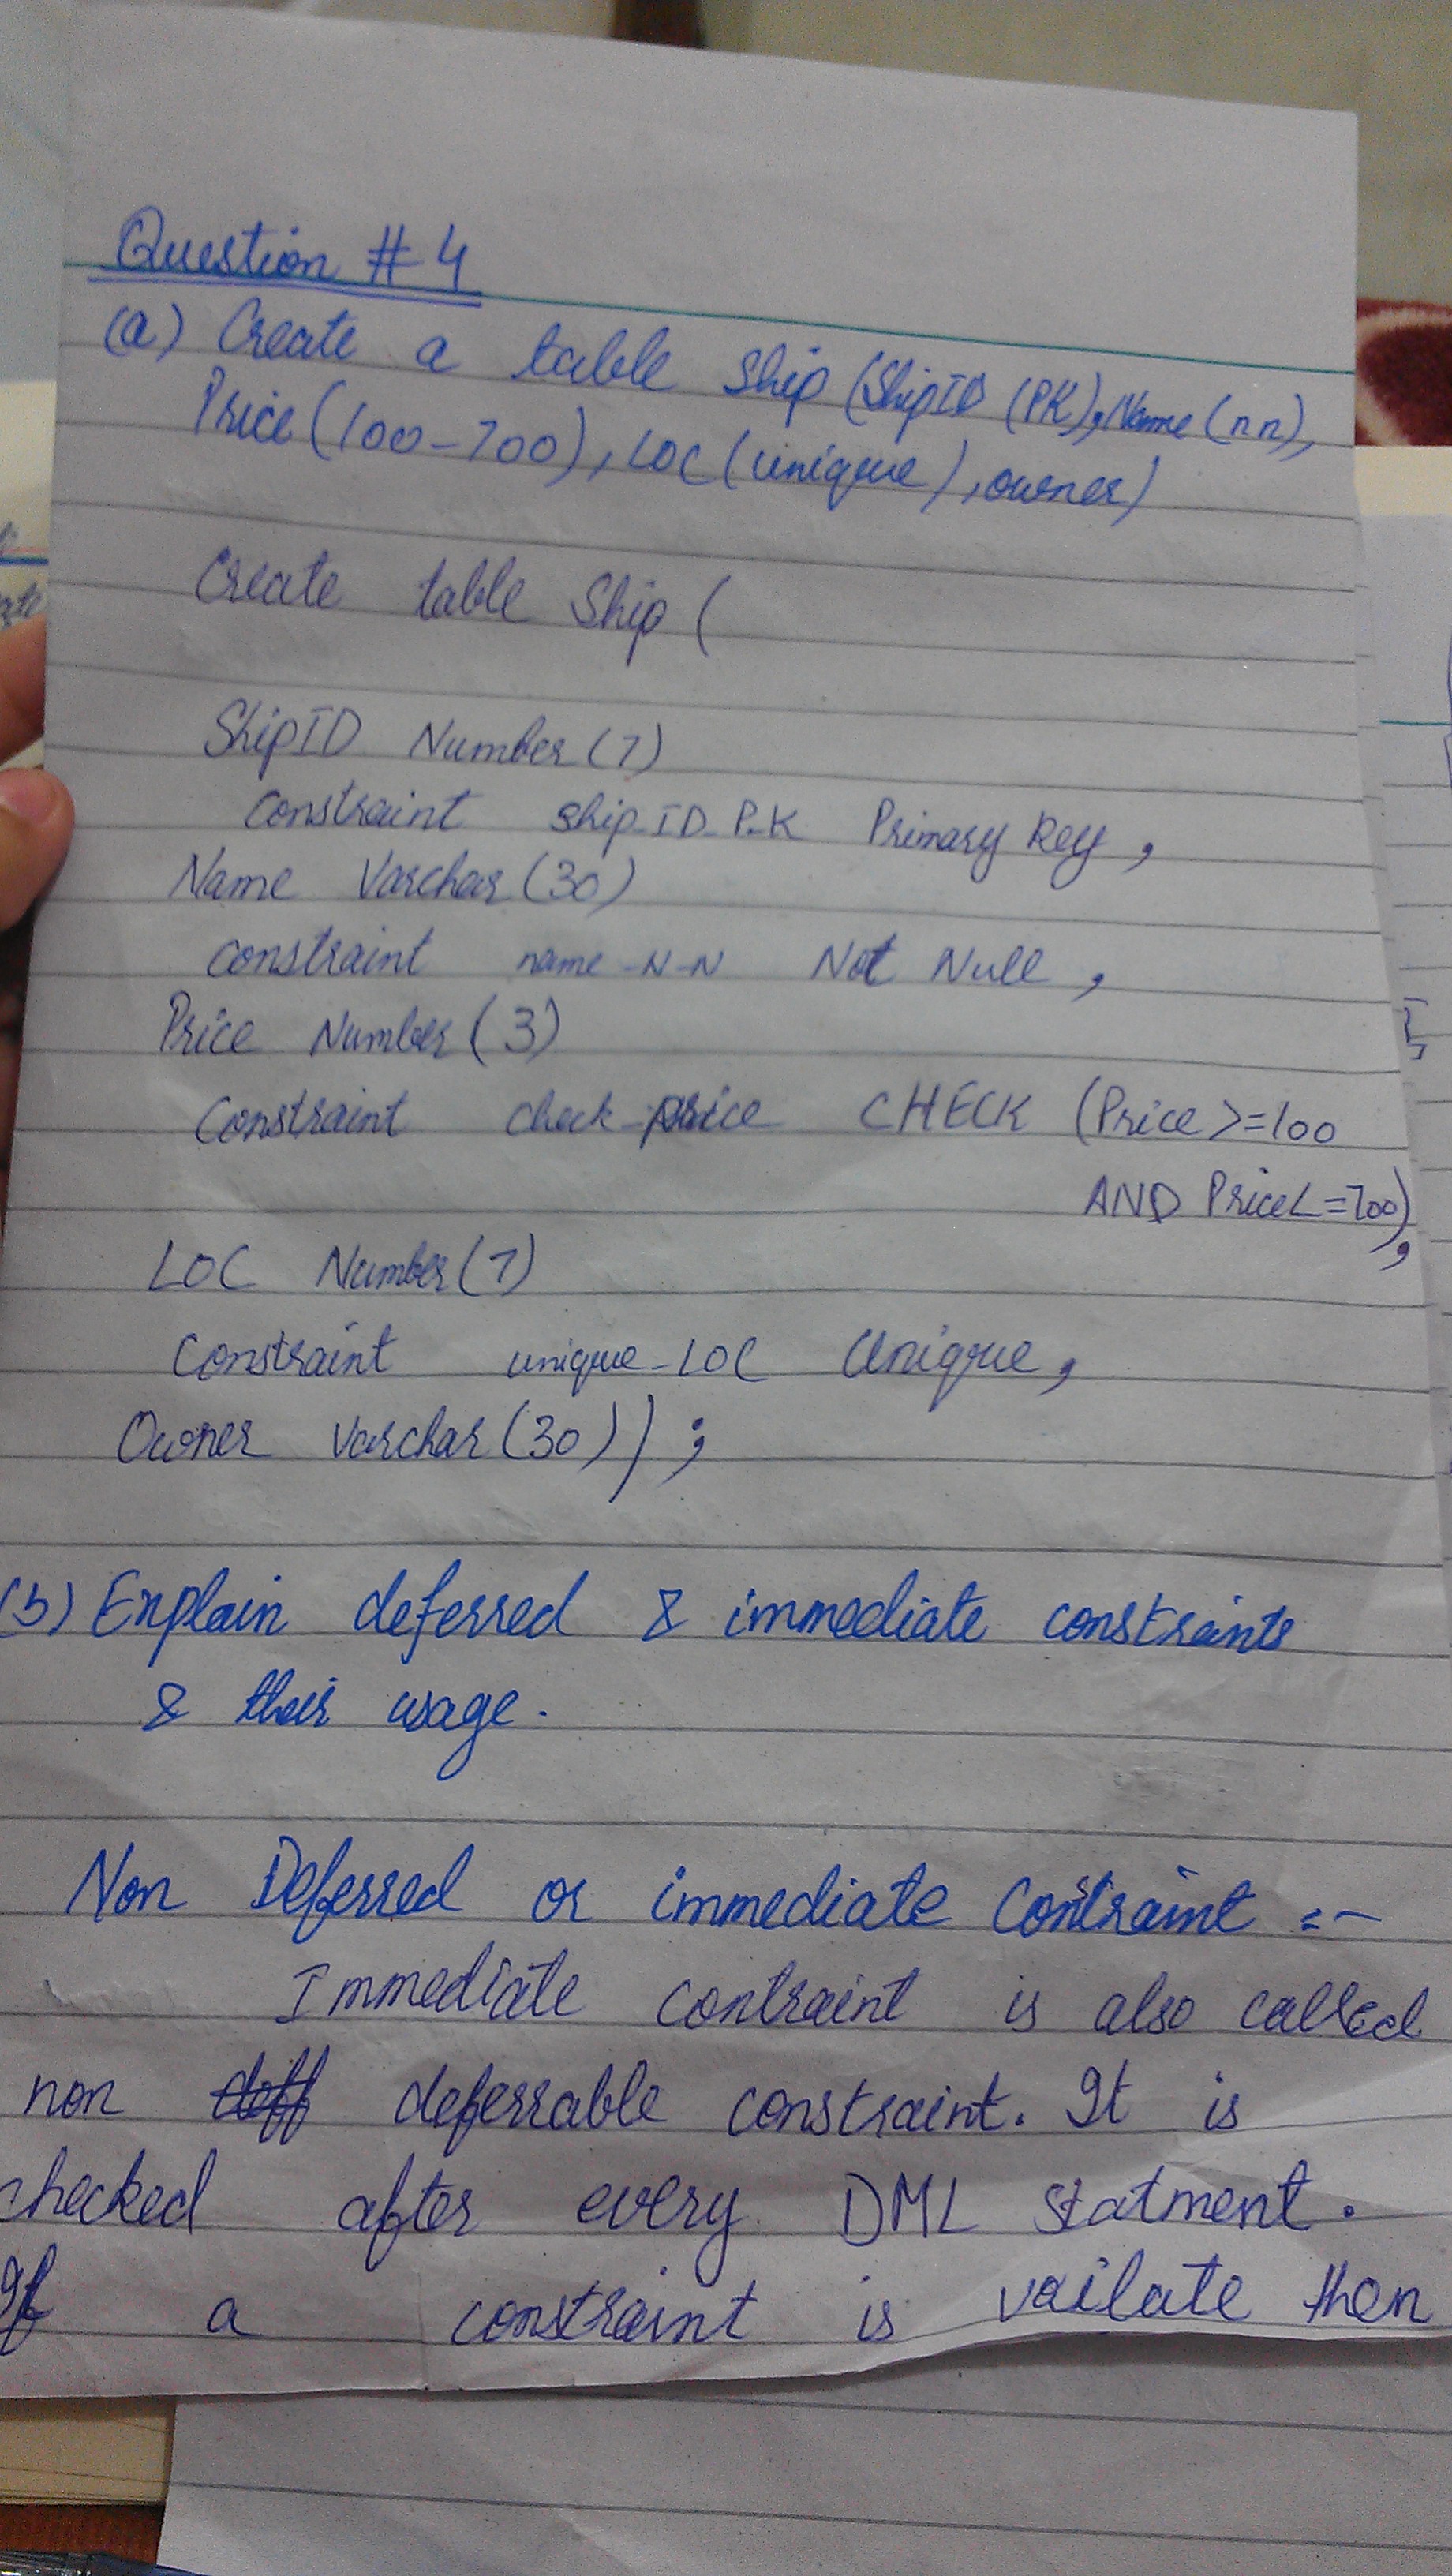 Question # 4
(a) Create a table Ship (ShipID (PK), Name (nn),
Price (100-700), LOC (unique), owner)
Create table Ship (
ShipID Number (7)
constraint ship_ID_P_K Primary Key,
Name Varchar (30)
constraint name_N_N Not Null,
Price Number (3)
Constraint check_price CHECK (Price >=100
AND Price <=700),
LOC Number (7)
Constraint unique_LOC Unique,
Owner Varchar (30));
(b) Explain deferred & immediate constraints
& their usage.
Non Deferred or immediate Constraint :-
Immediate contraint is also called
non deferrable constraint. It is
checked after every DML statment.
If a constraint is vailate then